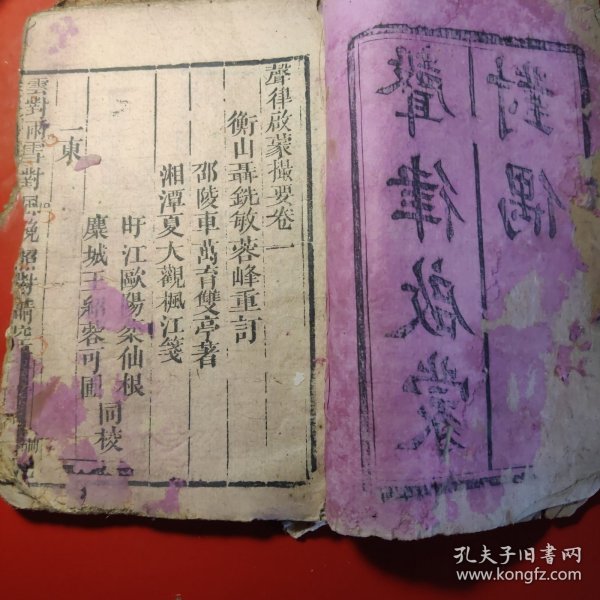 對偶
聲律啟蒙
聲律啟蒙撮要卷一
衡山聶銑敏蓉峰重訂
邵陵車萬育雙亭著
湘潭夏大觀楓江箋
旴江歐陽梁仙根
麋城王紹蓉可圃
同校
一東
雲對雨雪對風晚照對晴空
孔夫子旧书网
www.kongfz.com